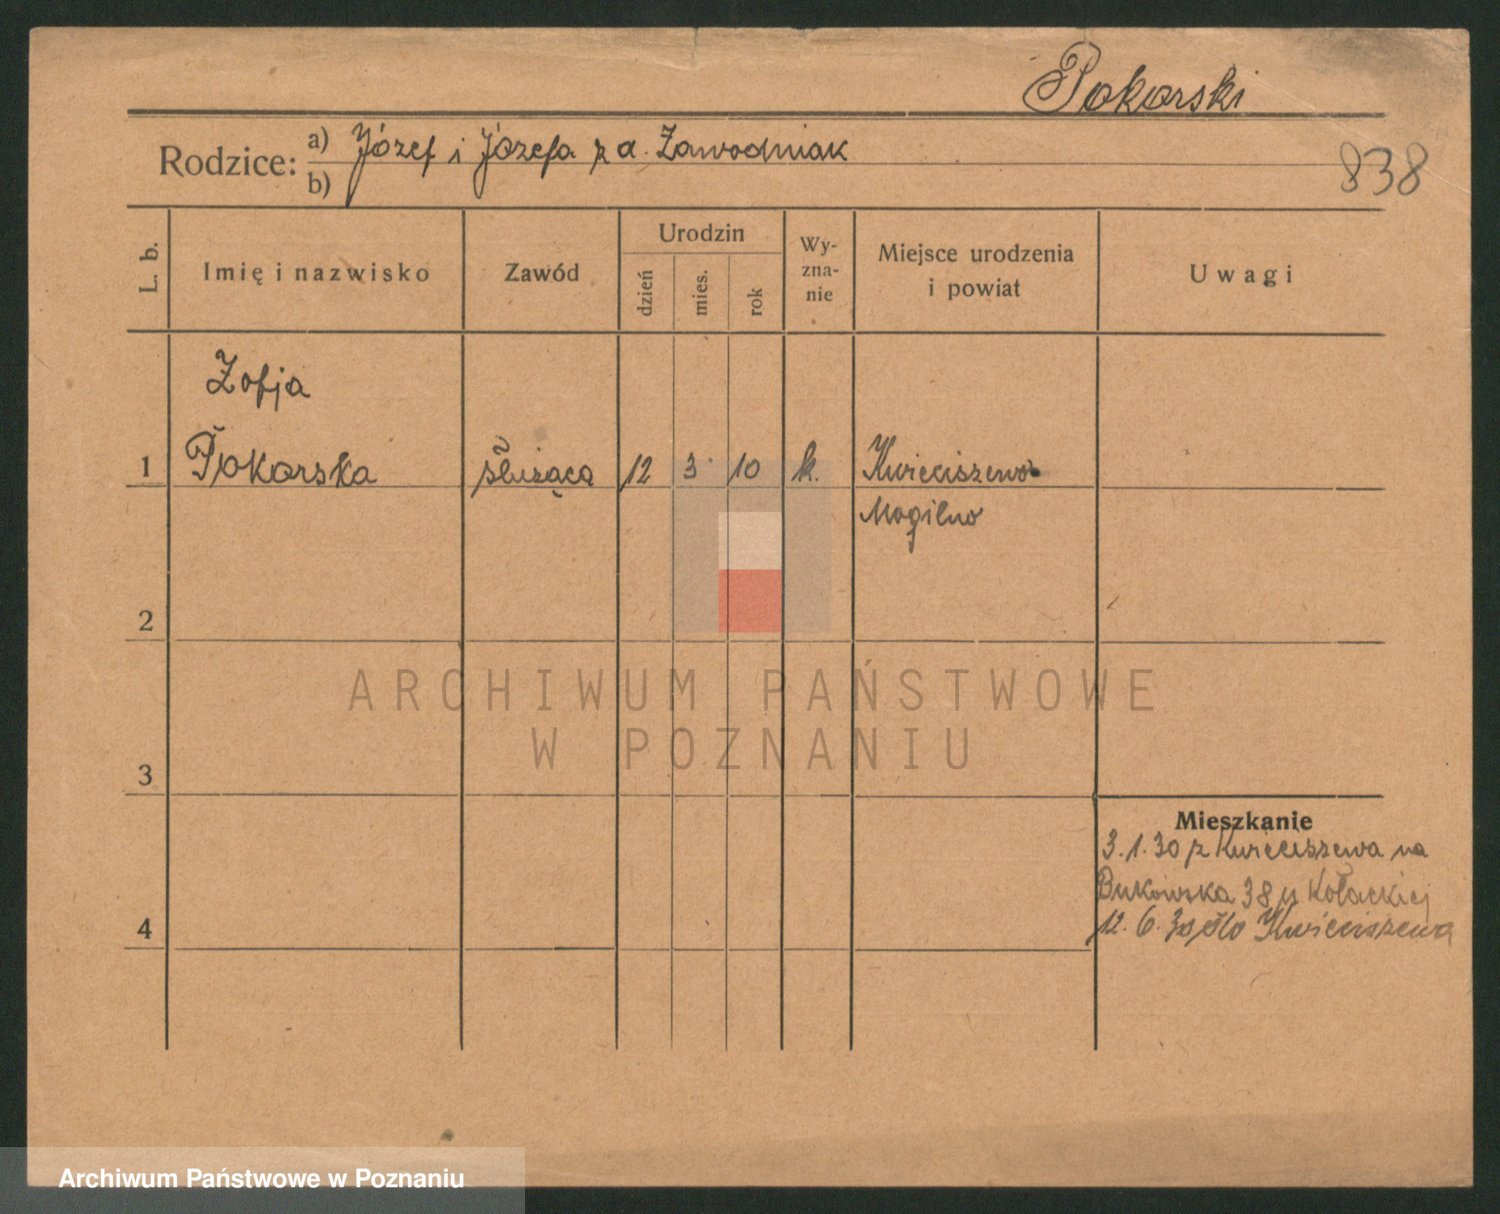 Pokorski
Rodzice: a) Józef i Józefa z d. Zawodniak
b)
838
L. b.
Imię i nazwisko
Zawód
Urodzin
dzień
mies.
rok
Wy-
zna-
nie
Miejsce urodzenia
i powiat
Uwagi
Zofja
1 Pokorska służąca 12 3 10 k. Kwieciszewo
Mogilno
2
ARCHIWUM PAŃSTWOWE
W POZNANIU
3
Mieszkanie
3.1.30 z Kwieciszewa na
Bukowska 38 u Kołackiej
4
12.6.30 do Kwieciszewa
Archiwum Państwowe w Poznaniu